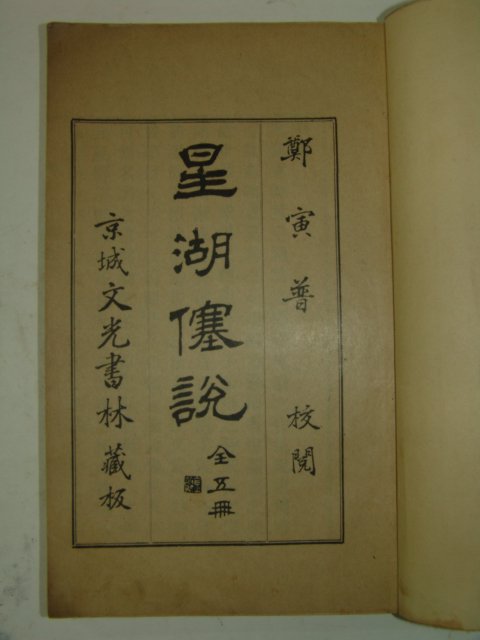 鄭寅普 校閱
星湖僿說
全五冊
京城文光書林藏板